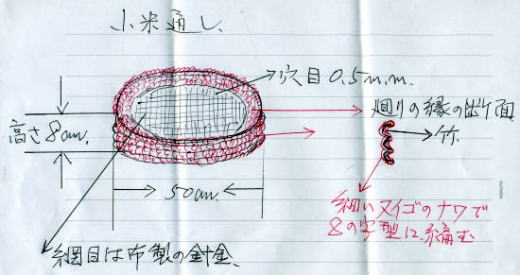 小米通し
穴目0.5m.m.
廻りの縁の断面
高さ8cm.
竹
50cm.
細いヌイゴのナワで
8の字型に編む
網目は布製の針金